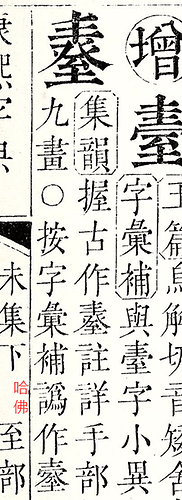 增
玉篇烏解切音矮舍
字彙補與臺字小異
集韻握古作註詳手部
九畫○按字彙補譌作
康熙字典
未集下
至部
哈佛